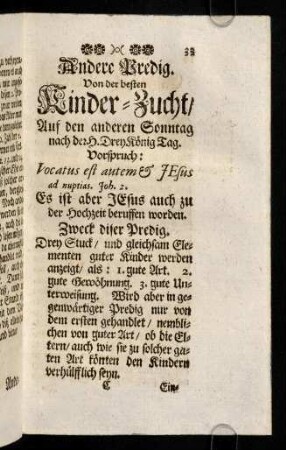 33
Andere Predig.
Von der besten
Kinder-Zucht/
Auf den anderen Sonntag
nach der H. Drey König Tag.
Vorspruch:
Vocatus est autem & JEsus
ad nuptias. Joh. 2.
Es ist aber JEsus auch zu
der Hochzeit beruffen worden.
Zweck diser Predig.
Drey Stuck/ und gleichsam Ele-
menten guter Kinder werden
anzeigt/ als: 1. gute Art. 2.
gute Gewöhnung. 3. gute Un-
terweisung. Wird aber in ge-
genwärtiger Predig nur von
dem ersten gehandlet/ nembli-
chen von guter Art/ ob die El-
tern/ auch wie sie zu solcher gu-
ten Art könten den Kindern
verhülfflich seyn.
C Ein-